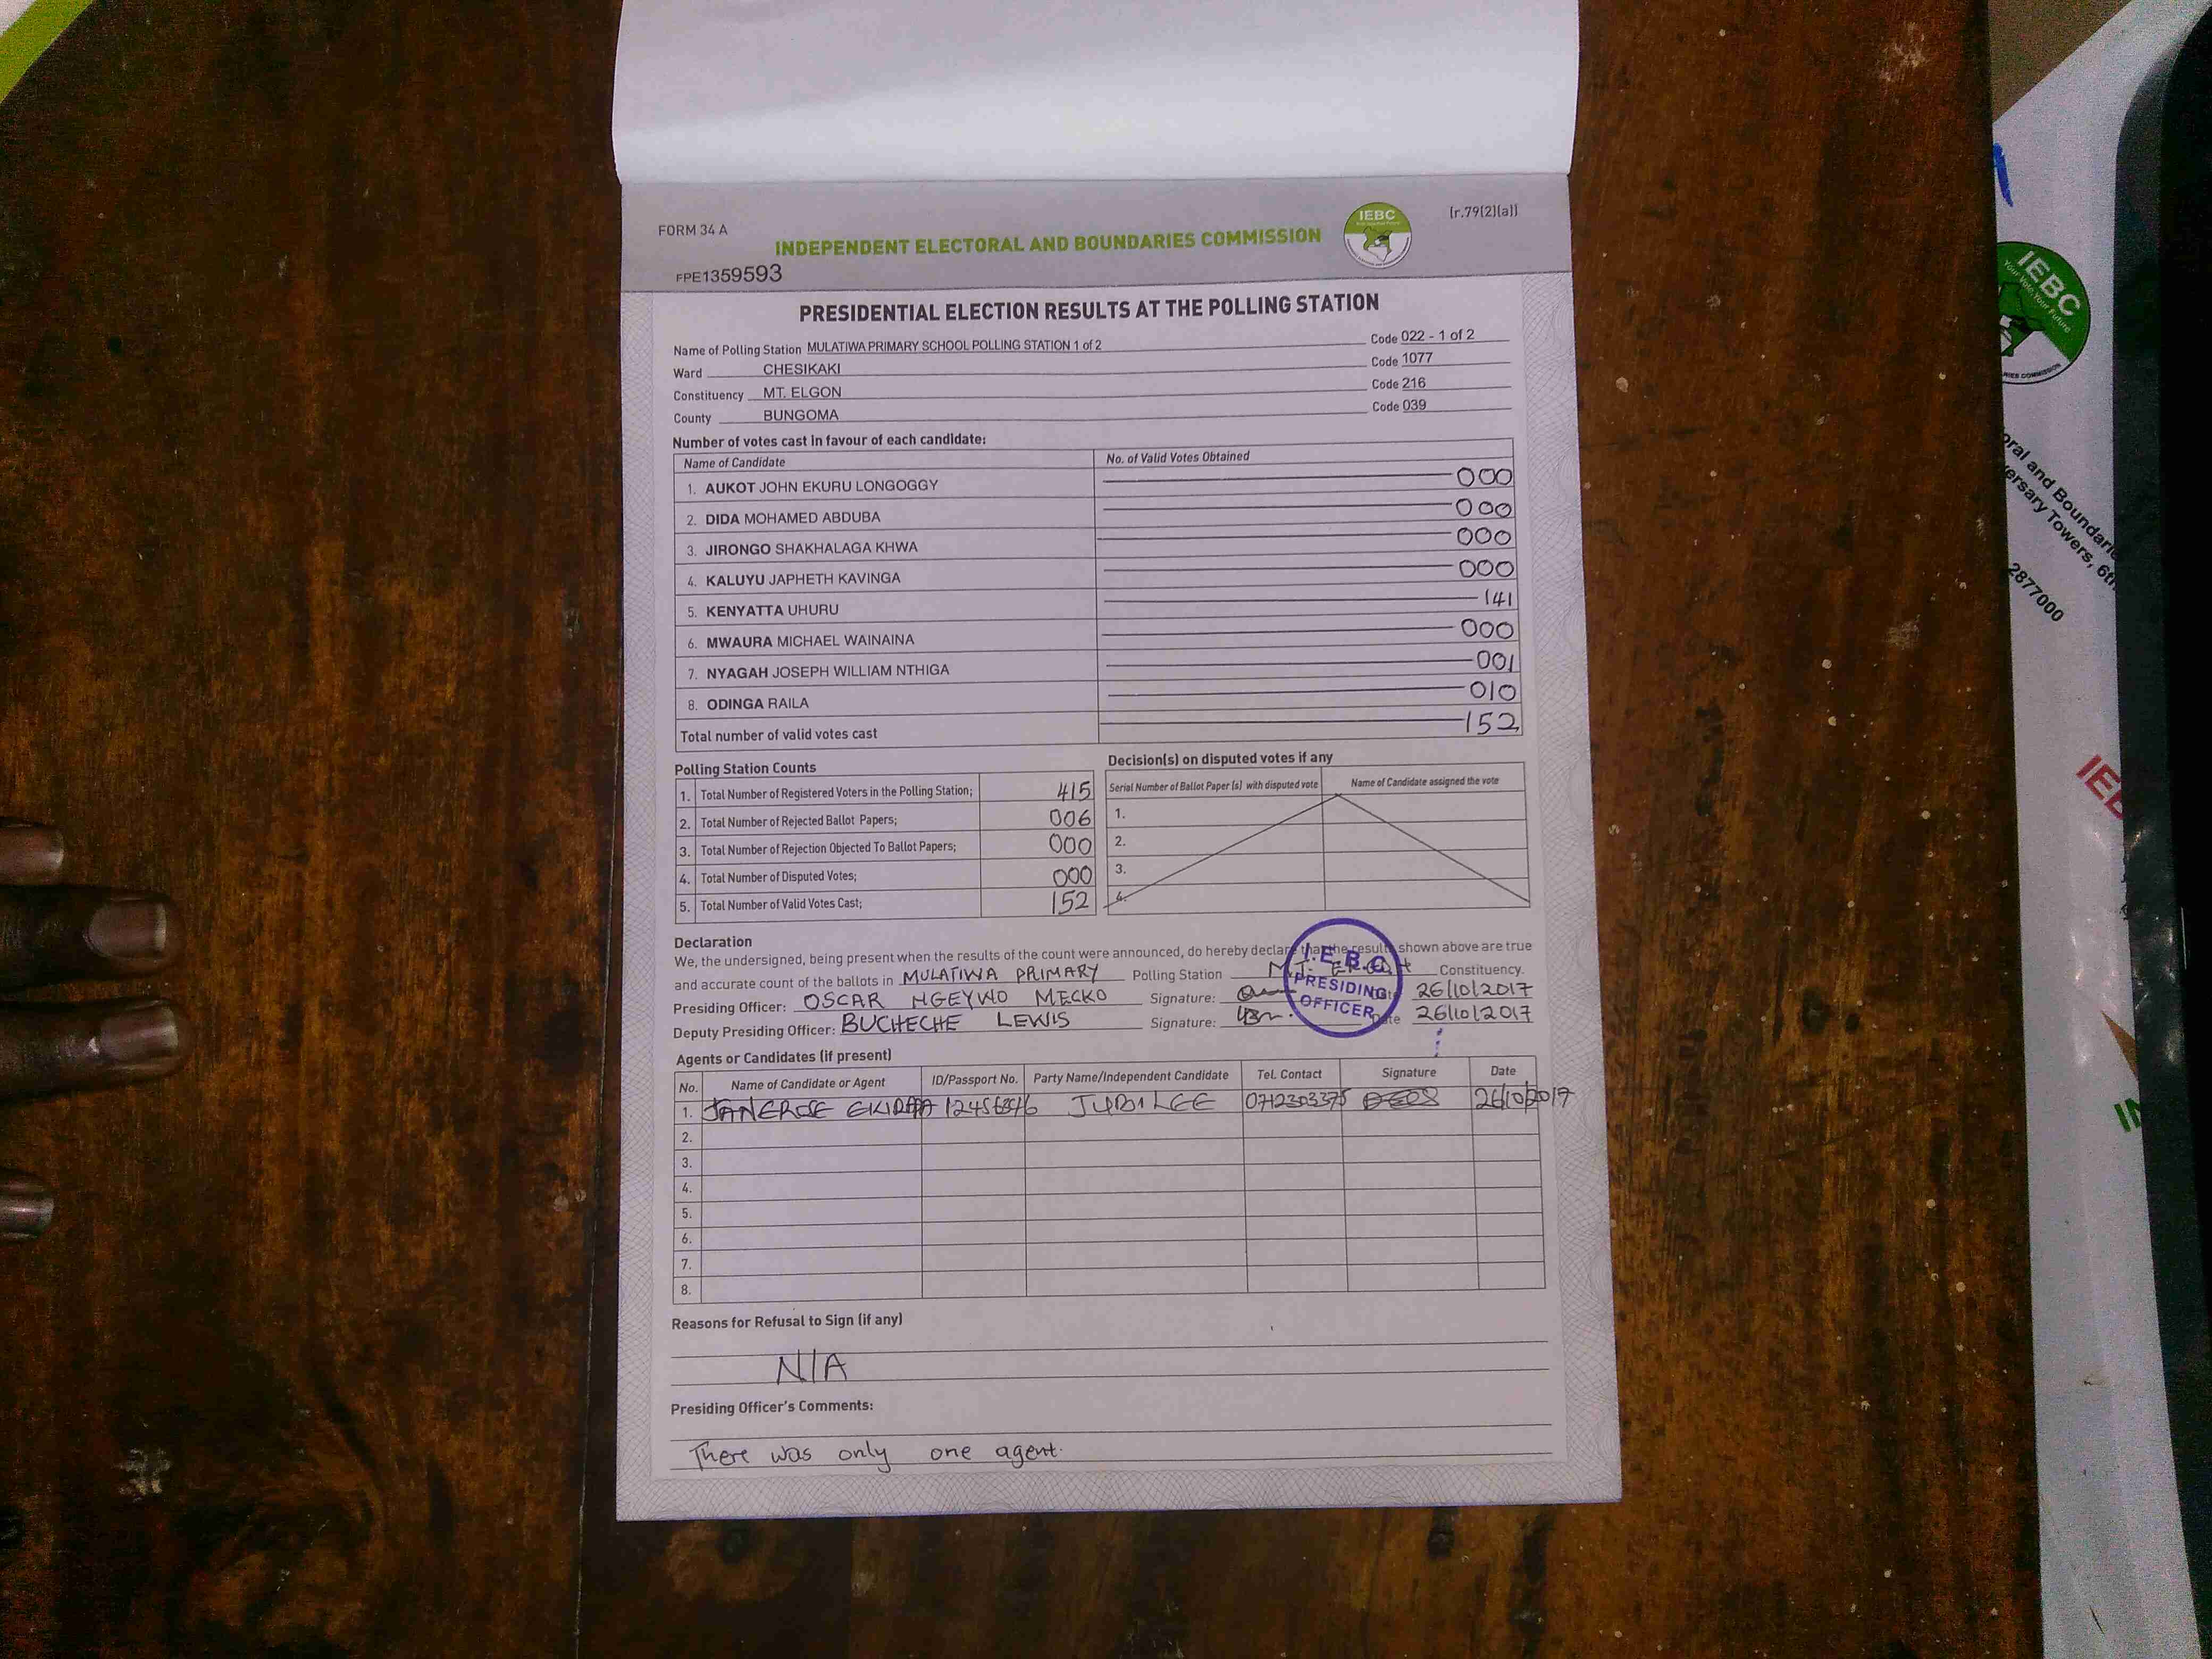 FORM 34 A
[r.79(2)(a)]
IEBC
INDEPENDENT ELECTORAL AND BOUNDARIES COMMISSION
FPE1359593
PRESIDENTIAL ELECTION RESULTS AT THE POLLING STATION
Name of Polling Station MULATIWA PRIMARY SCHOOL POLLING STATION 1 of 2 Code 022 - 1 of 2
Ward CHESIKAKI Code 1077
Constituency MT. ELGON Code 216
County BUNGOMA Code 039
Number of votes cast in favour of each candidate:
Name of Candidate No. of Valid Votes Obtained
1. AUKOT JOHN EKURU LONGOGGY 000
2. DIDA MOHAMED ABDUBA 000
3. JIRONGO SHAKHALAGA KHWA 000
4. KALUYU JAPHETH KAVINGA 000
5. KENYATTA UHURU 141
6. MWAURA MICHAEL WAINAINA 000
7. NYAGAH JOSEPH WILLIAM NTHIGA 001
8. ODINGA RAILA 010
Total number of valid votes cast 152
Polling Station Counts
1. Total Number of Registered Voters in the Polling Station; 415
2. Total Number of Rejected Ballot Papers; 006
3. Total Number of Rejection Objected To Ballot Papers; 000
4. Total Number of Disputed Votes; 000
5. Total Number of Valid Votes Cast; 152
Decision(s) on disputed votes if any
Serial Number of Ballot Paper (s) with disputed vote Name of Candidate assigned the vote
1.
2.
3.
4.
Declaration
We, the undersigned, being present when the results of the count were announced, do hereby declare that the results shown above are true
and accurate count of the ballots in MULATIWA PRIMARY Polling Station Constituency.
Presiding Officer: OSCAR NGEYWO MECKO Signature: Date 26/10/2017
Deputy Presiding Officer: BUCHECHE LEWIS Signature: Date 26/10/2017
I.E.B.C
PRESIDING
OFFICER
Agents or Candidates (if present)
No. Name of Candidate or Agent ID/Passport No. Party Name/Independent Candidate Tel. Contact Signature Date
1. JANEROSE JUBILEE 0712303375 26/10/2017
2.
3.
4.
5.
6.
7.
8.
Reasons for Refusal to Sign (if any)
N/A
Presiding Officer's Comments:
There was only one agent.
IEBC
Your Vote Your Future
2877000